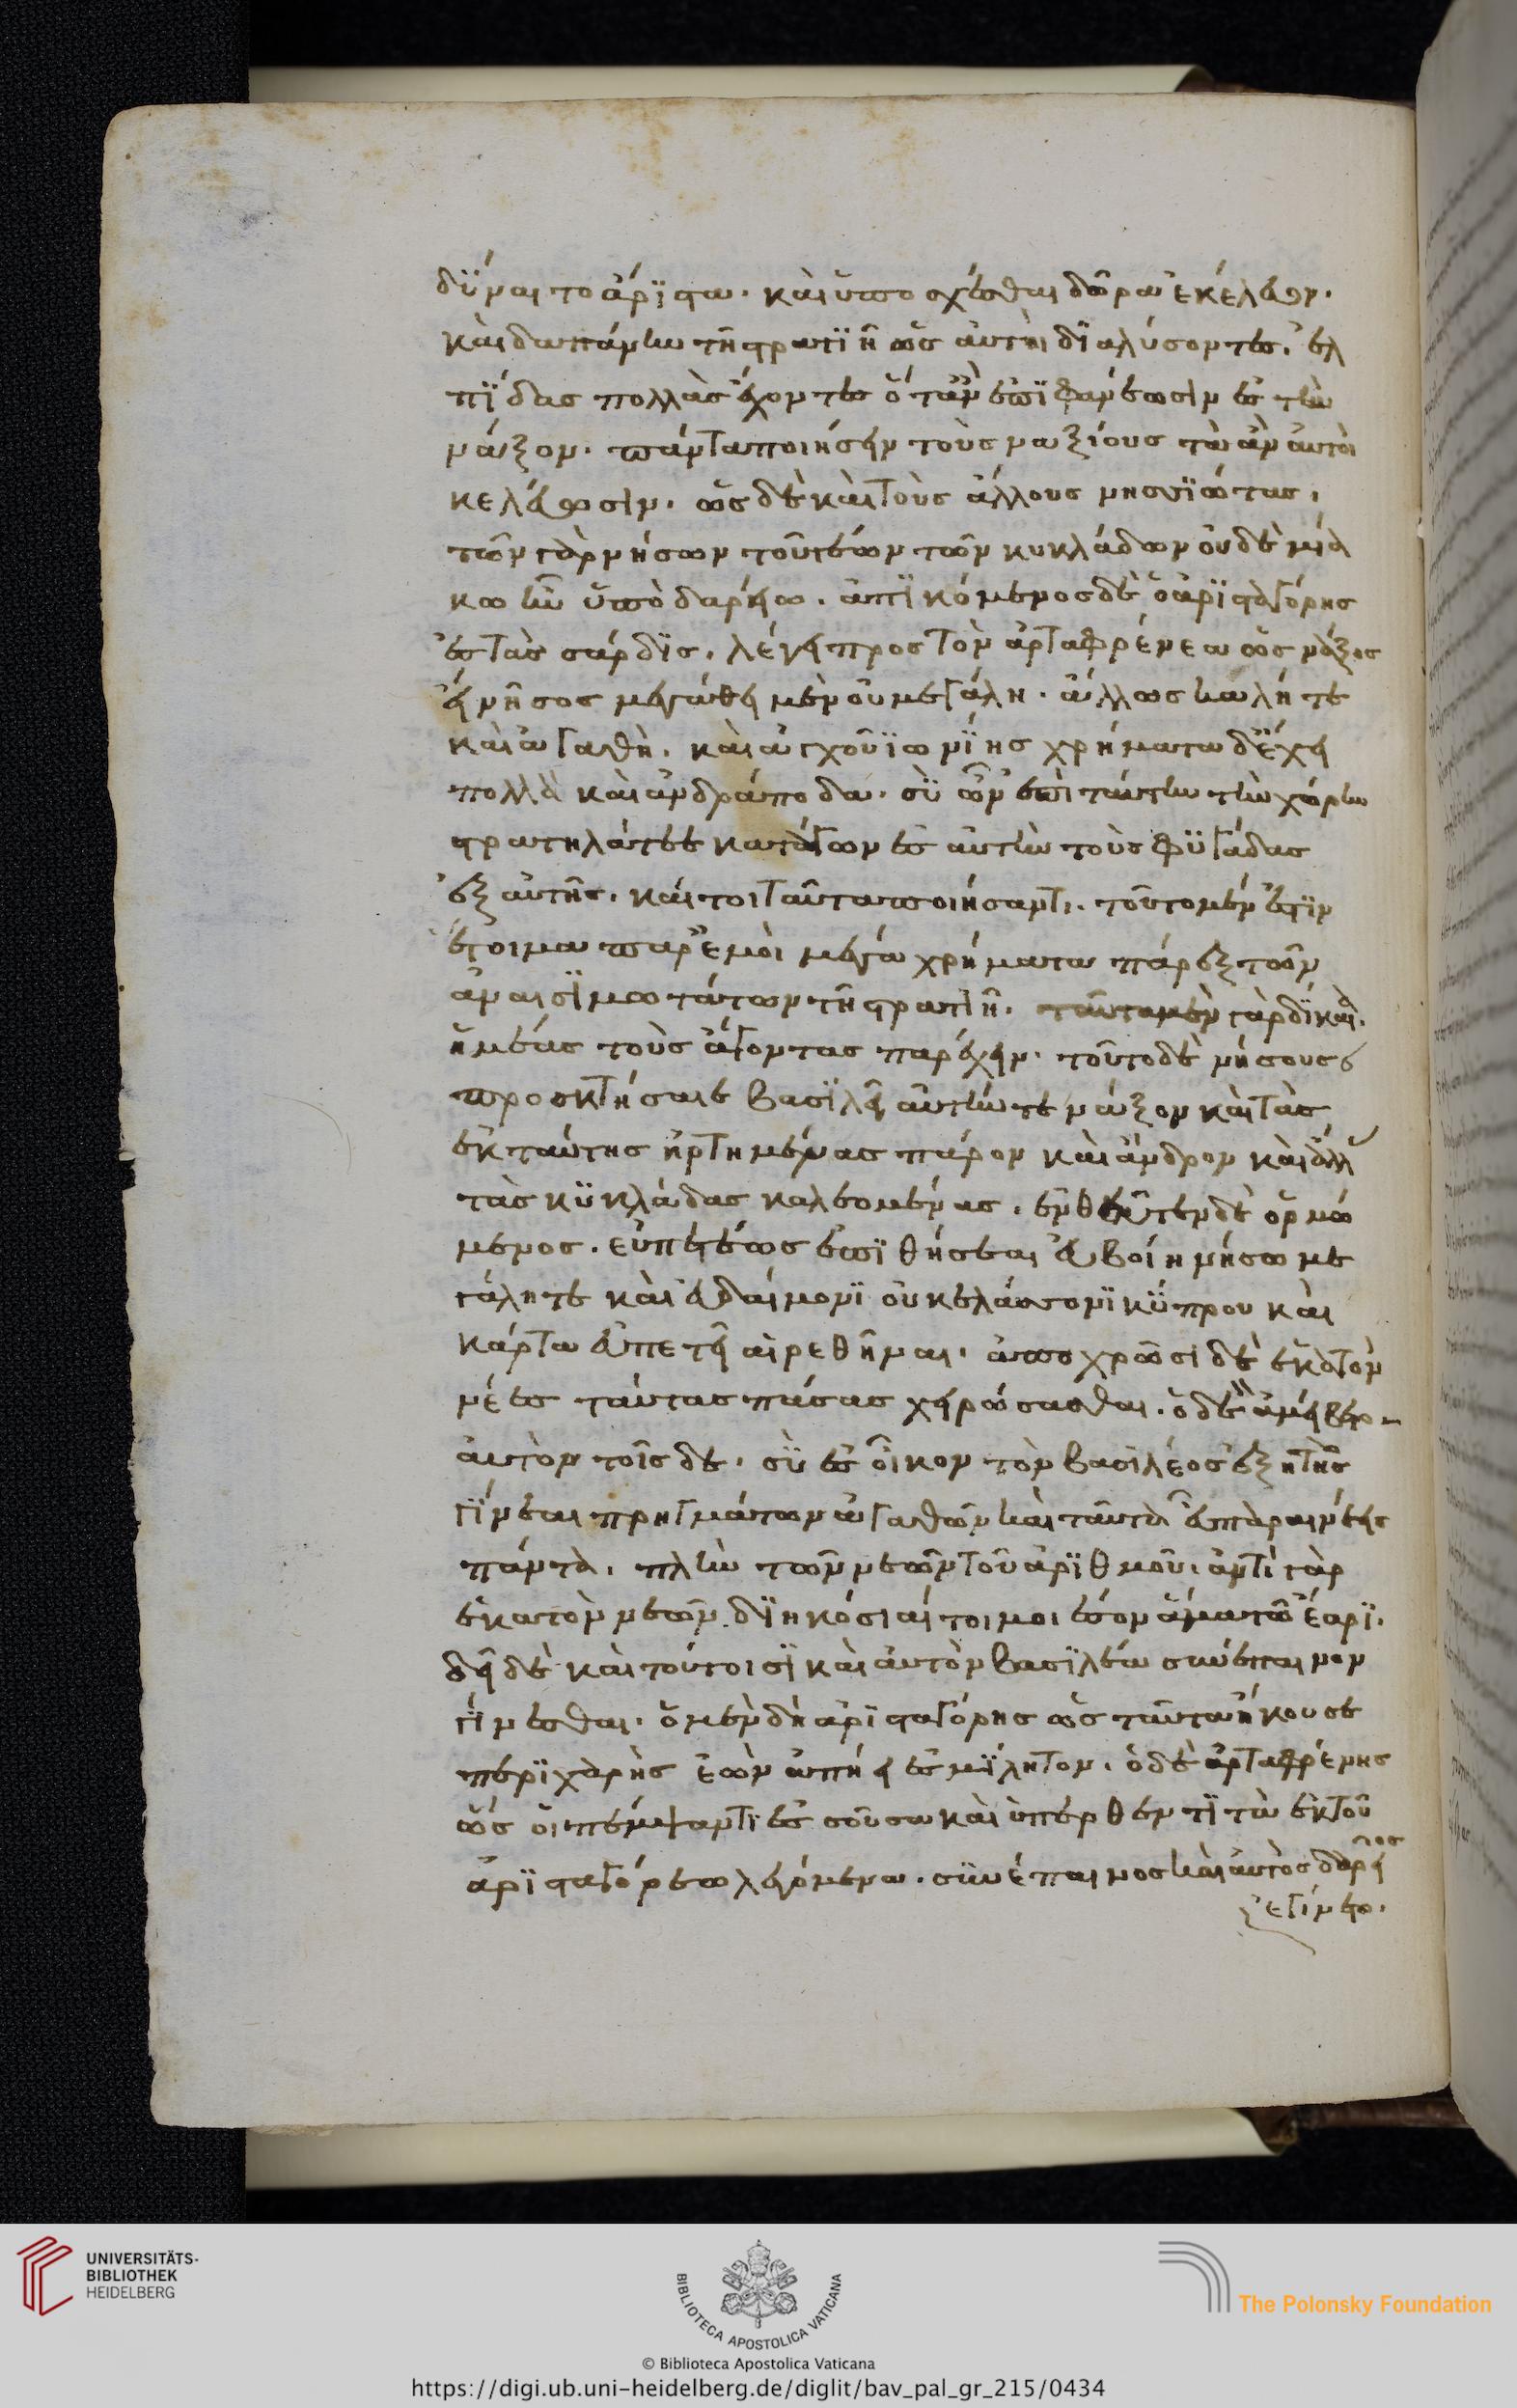 δύναιτο ἄριστα. καὶ ὑποσχέσθαι δῶρα ἐκέλευον.
καὶ δαπάνην τῆ στρατιῆ ὡς αὐτοὶ διαλύσοντες. ἐλ
πίδας πολλὰς ἔχοντες ὅταν ἐπιφανέωσιν ἐς τὴν
νάξον. πάντα ποιήσειν τοὺς ναξίους τὰ ἂν αὐτοὶ
κελεύωσιν. ὡς δὲ καὶ τοὺς ἄλλους νησιώτας.
τῶν γὰρ νήσων τουτέων τῶν κυκλάδων οὐδὲ μία
κω ἦν ὑπὸ δαρείω. ἀπικόμενος δὲ ὁ ἀρισταγόρης
ἐς τὰς σάρδις. λέγει προς τὸν ἀρταφρένεα ὡς νάξος
εἴη νῆσος μεγάθεϊ μὲν οὐ μεγάλη. ἄλλως καλή τε
καὶ ἀγαθὴ. καὶ ἀγχοῦ ἰωνίης χρήματα δ' ἔχει
πολλὰ καὶ ἀνδράποδα. σὺ ὦν ἐπὶ ταύτην τὴν χώρην
στρατηλάτεε κατάγων ἐς αὐτὴν τοὺς φυγάδας
ἐξ αὐτῆς. καί τοι ταῦτα ποιήσαντι. τοῦτο μέν ἐστιν
ἕτοιμα παρ' ἐμοὶ μεγάλα χρήματα πάρεξ τῶν
ἀναισιμωτάτων τῆ στρατιῆ. ταῦτα μὲν γὰρ δίκαι.
ἡμέας τοὺς ἄγοντας παρέχειν. τοῦτο δὲ νήσους
προσκτήσεαι βασιλεῖ αὐτήν τε νάξον καὶ τὰς
ἐκ ταύτης ἠρτημένας πάρον καὶ ἄνδρον καὶ ἄλλ
τὰς κυκλάδας καλεομένας. ἐνθεῦτεν δὲ ὁρμώ
μενος. εὐπετέως ἐπιθήσεαι εὐβοίη νήσω με
γάλη τε καὶ εὐδαίμονι οὐκ ἐλάσσονι κύπρου καὶ
κάρτα εὐπετεῖ αἱρεθῆναι. ἀποχρῶσι δὲ ἑκατὸν
νέες ταύτας πάσας χειρώσασθαι. ὁ δὲ ἀμείβετο
αὐτὸν τοῖσδε. σὺ ἐς οἶκον τὸν βασιλέος ἐξηγητὴς
γίνεαι πρηγμάτων ἀγαθῶν καὶ ταῦτα εὖ παραινέεις
πάντα. πλὴν τῶν νεῶν τοῦ ἀριθμοῦ. ἀντὶ γὰρ
ἑκατὸν νεῶν. διηκόσιαί τοι μοι ἕτοιμοι ἔσονται ἅμα τῶ ἔαρι.
δεῖ δὲ καὶ τούτοισι καὶ αὐτὸν βασιλέα συνέπαινον
γίνεσθαι. ὁ μὲν δὴ ἀρισταγόρης ὡς ταῦτα ἤκουσε
περιχαρὴς ἐὼν ἀπήει ἐς μίλητον. ὁ δὲ ἀρταφρένης
ὥς οἱ πέμψαντι ἐς σοῦσα καὶ ὑπερθέντι τὰ ἐκ τοῦ
ἀρισταγόρεω λεγόμενα. συνέπαινος καὶ αὐτὸς δαρεῖος
ἐγένετο.
UNIVERSITÄTS-
BIBLIOTHEK
HEIDELBERG
BIBLIOTECA APOSTOLICA VATICANA
The Polonsky Foundation
© Biblioteca Apostolica Vaticana
https://digi.ub.uni-heidelberg.de/diglit/bav_pal_gr_215/0434